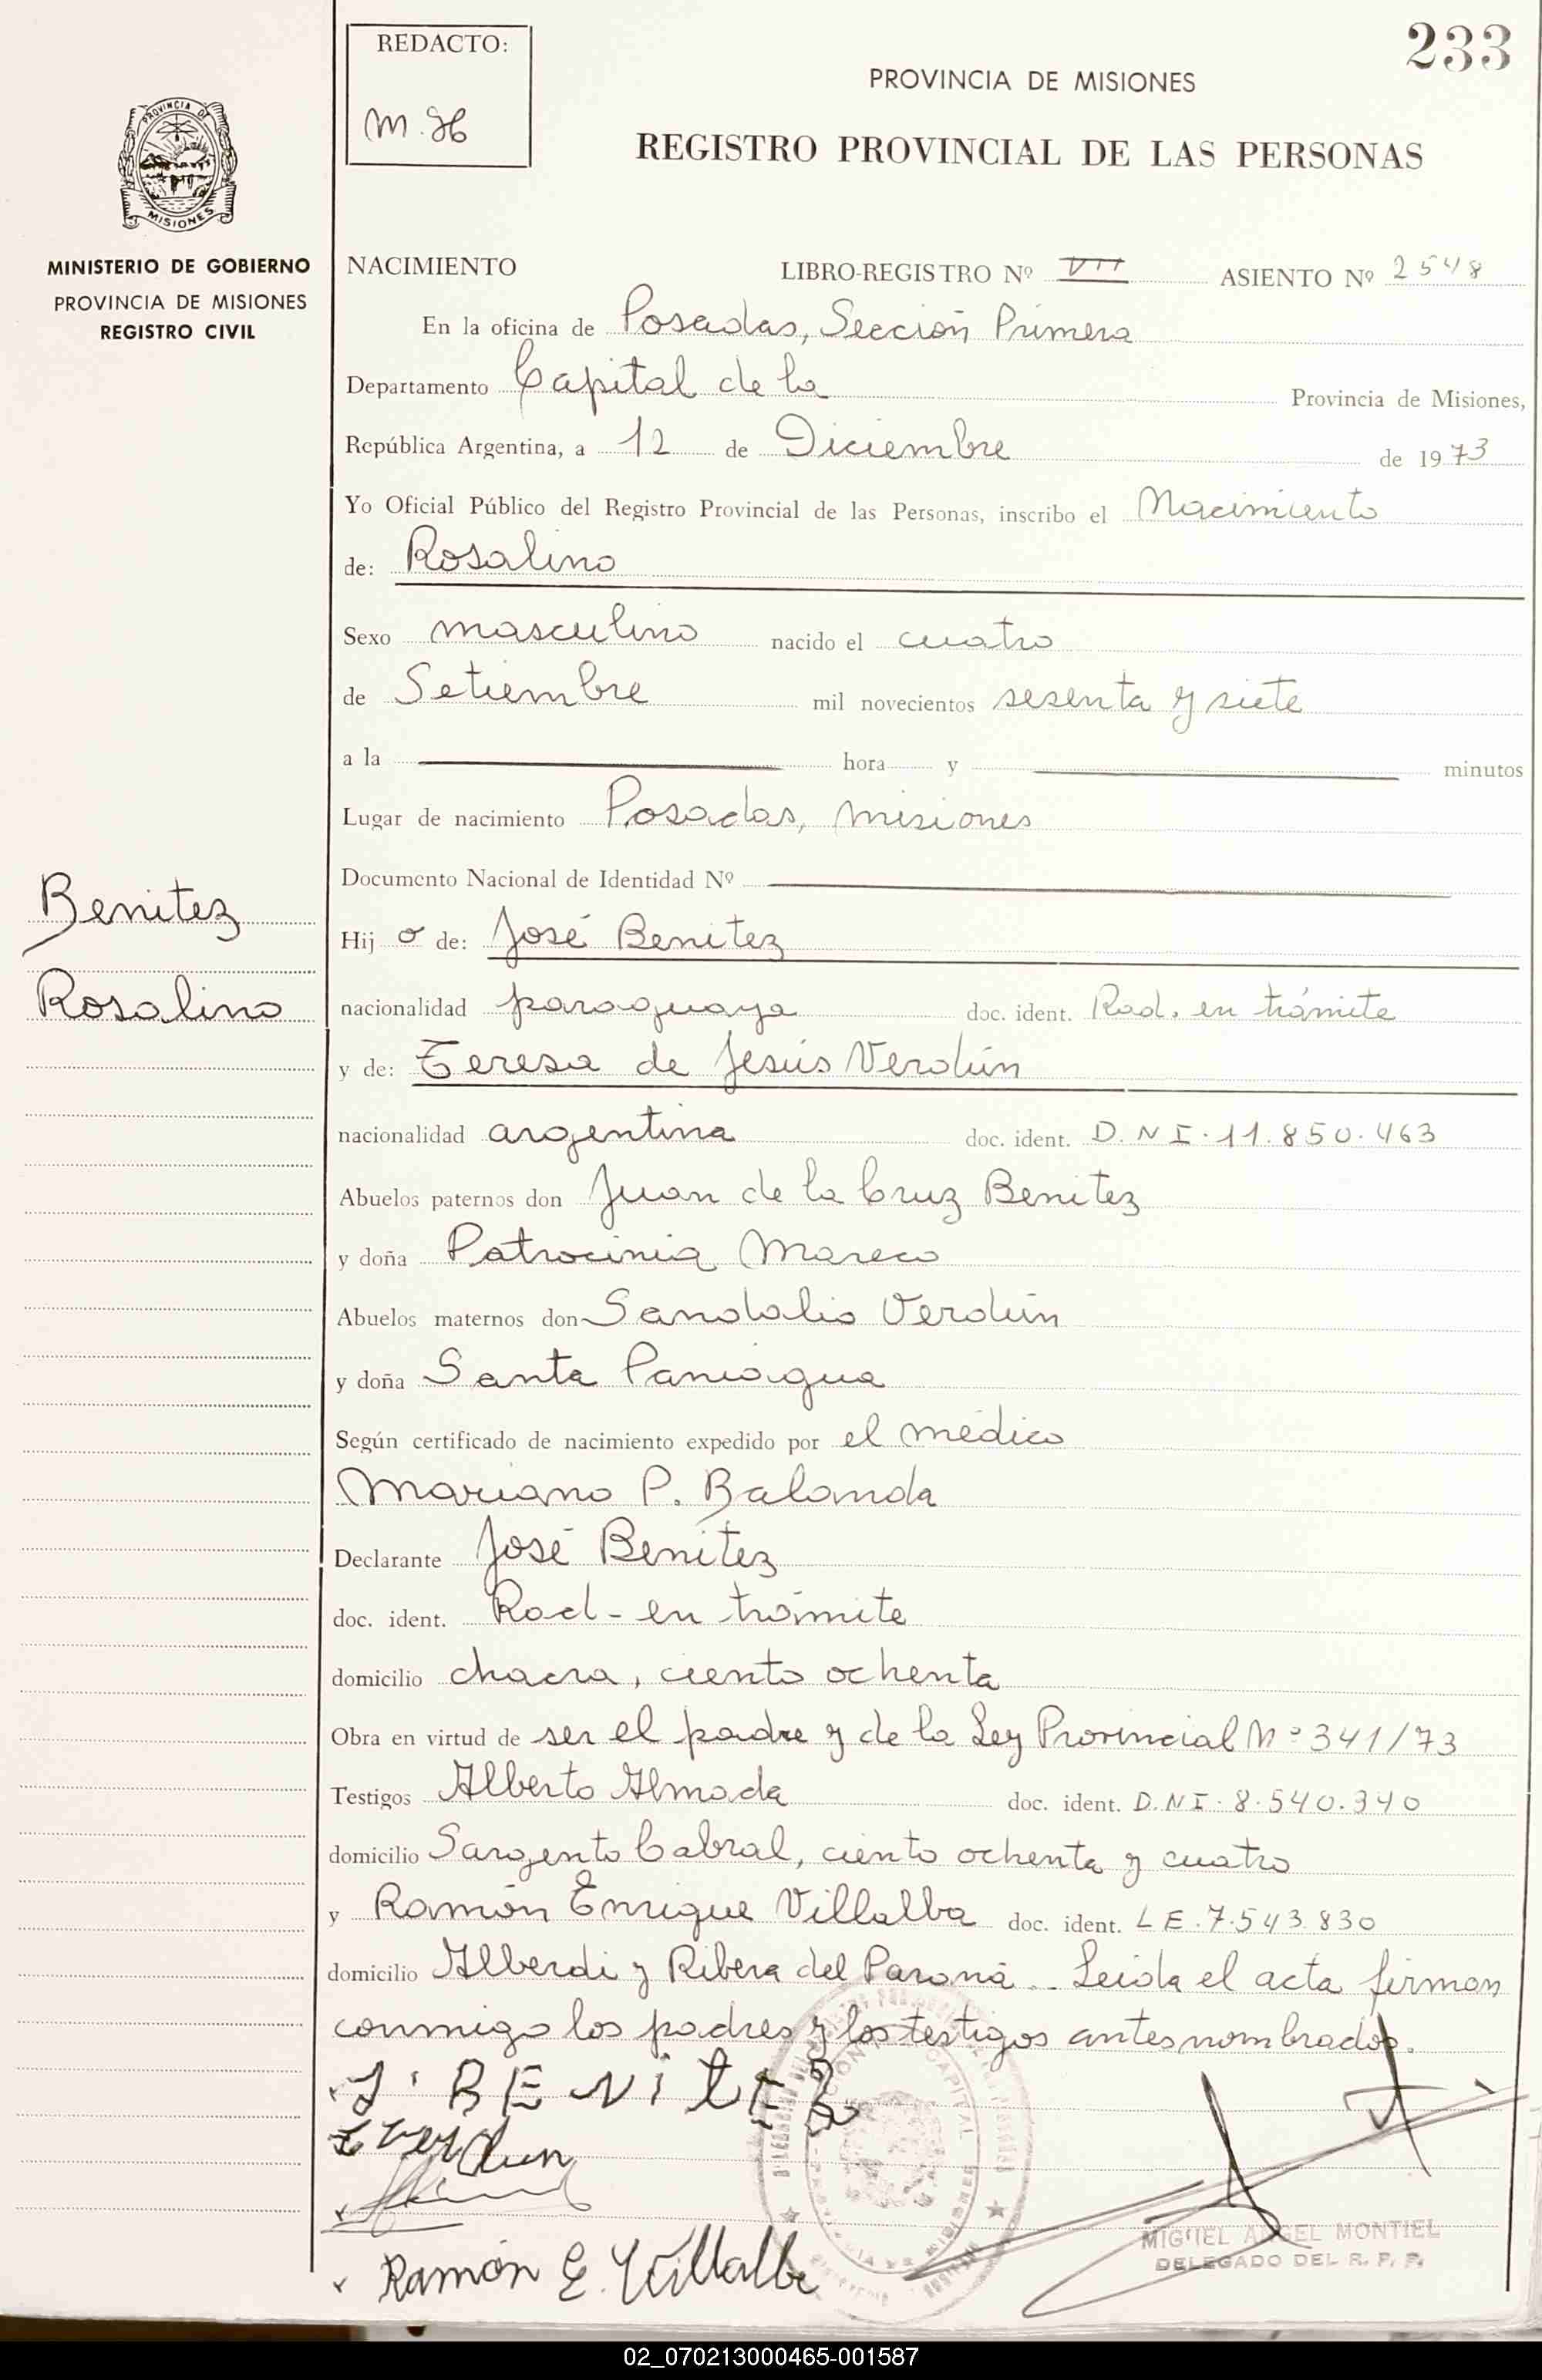 REDACTO:
233
PROVINCIA DE MISIONES
REGISTRO PROVINCIAL DE LAS PERSONAS
PROVINCIA DE
MISIONES
MINISTERIO DE GOBIERNO
PROVINCIA DE MISIONES
REGISTRO CIVIL
NACIMIENTO LIBRO-REGISTRO Nº VII ASIENTO Nº 2548
En la oficina de Posadas, Sección Primera
Departamento Capital de la Provincia de Misiones,
República Argentina, a 12 de Diciembre de 1973
Yo Oficial Público del Registro Provincial de las Personas, inscribo el Nacimiento
de: Rosalino
Sexo masculino nacido el cuatro
de Setiembre mil novecientos sesenta y siete
a la hora y minutos
Lugar de nacimiento Posadas, misiones
Documento Nacional de Identidad Nº
Benitez
Hij o de: José Benitez
Rosalino
nacionalidad paraguaya doc. ident. Rad. en trámite
y de: Teresa de Jesús Verdún
nacionalidad argentina doc. ident. D.N I. 11.850.463
Abuelos paternos don Juan de la Cruz Benitez
y doña Patrocinia Mareco
Abuelos maternos don Sandalio Verdún
y doña Santa Paniagua
Según certificado de nacimiento expedido por el médico
Mariano P. Balanda
Declarante José Benitez
doc. ident. Rad - en trámite
domicilio chacra, ciento ochenta
Obra en virtud de ser el padre y de la Ley Provincial Nº 341/73
Testigos Alberto Almada doc. ident. D.N I. 8.540.340
domicilio Sargento Cabral, ciento ochenta y cuatro
y Ramón Enrique Villalba doc. ident. L E. 7.543.830
domicilio Alberdi y Ribera del Paraná.. Leida el acta firman
conmigo los padres y los testigos antes nombrados.
J. BENiTEZ
Verdun
Ramón E. Villalba
MIGUEL ANGEL MONTIEL
DELEGADO DEL R. P. P.
02_070213000465-001587